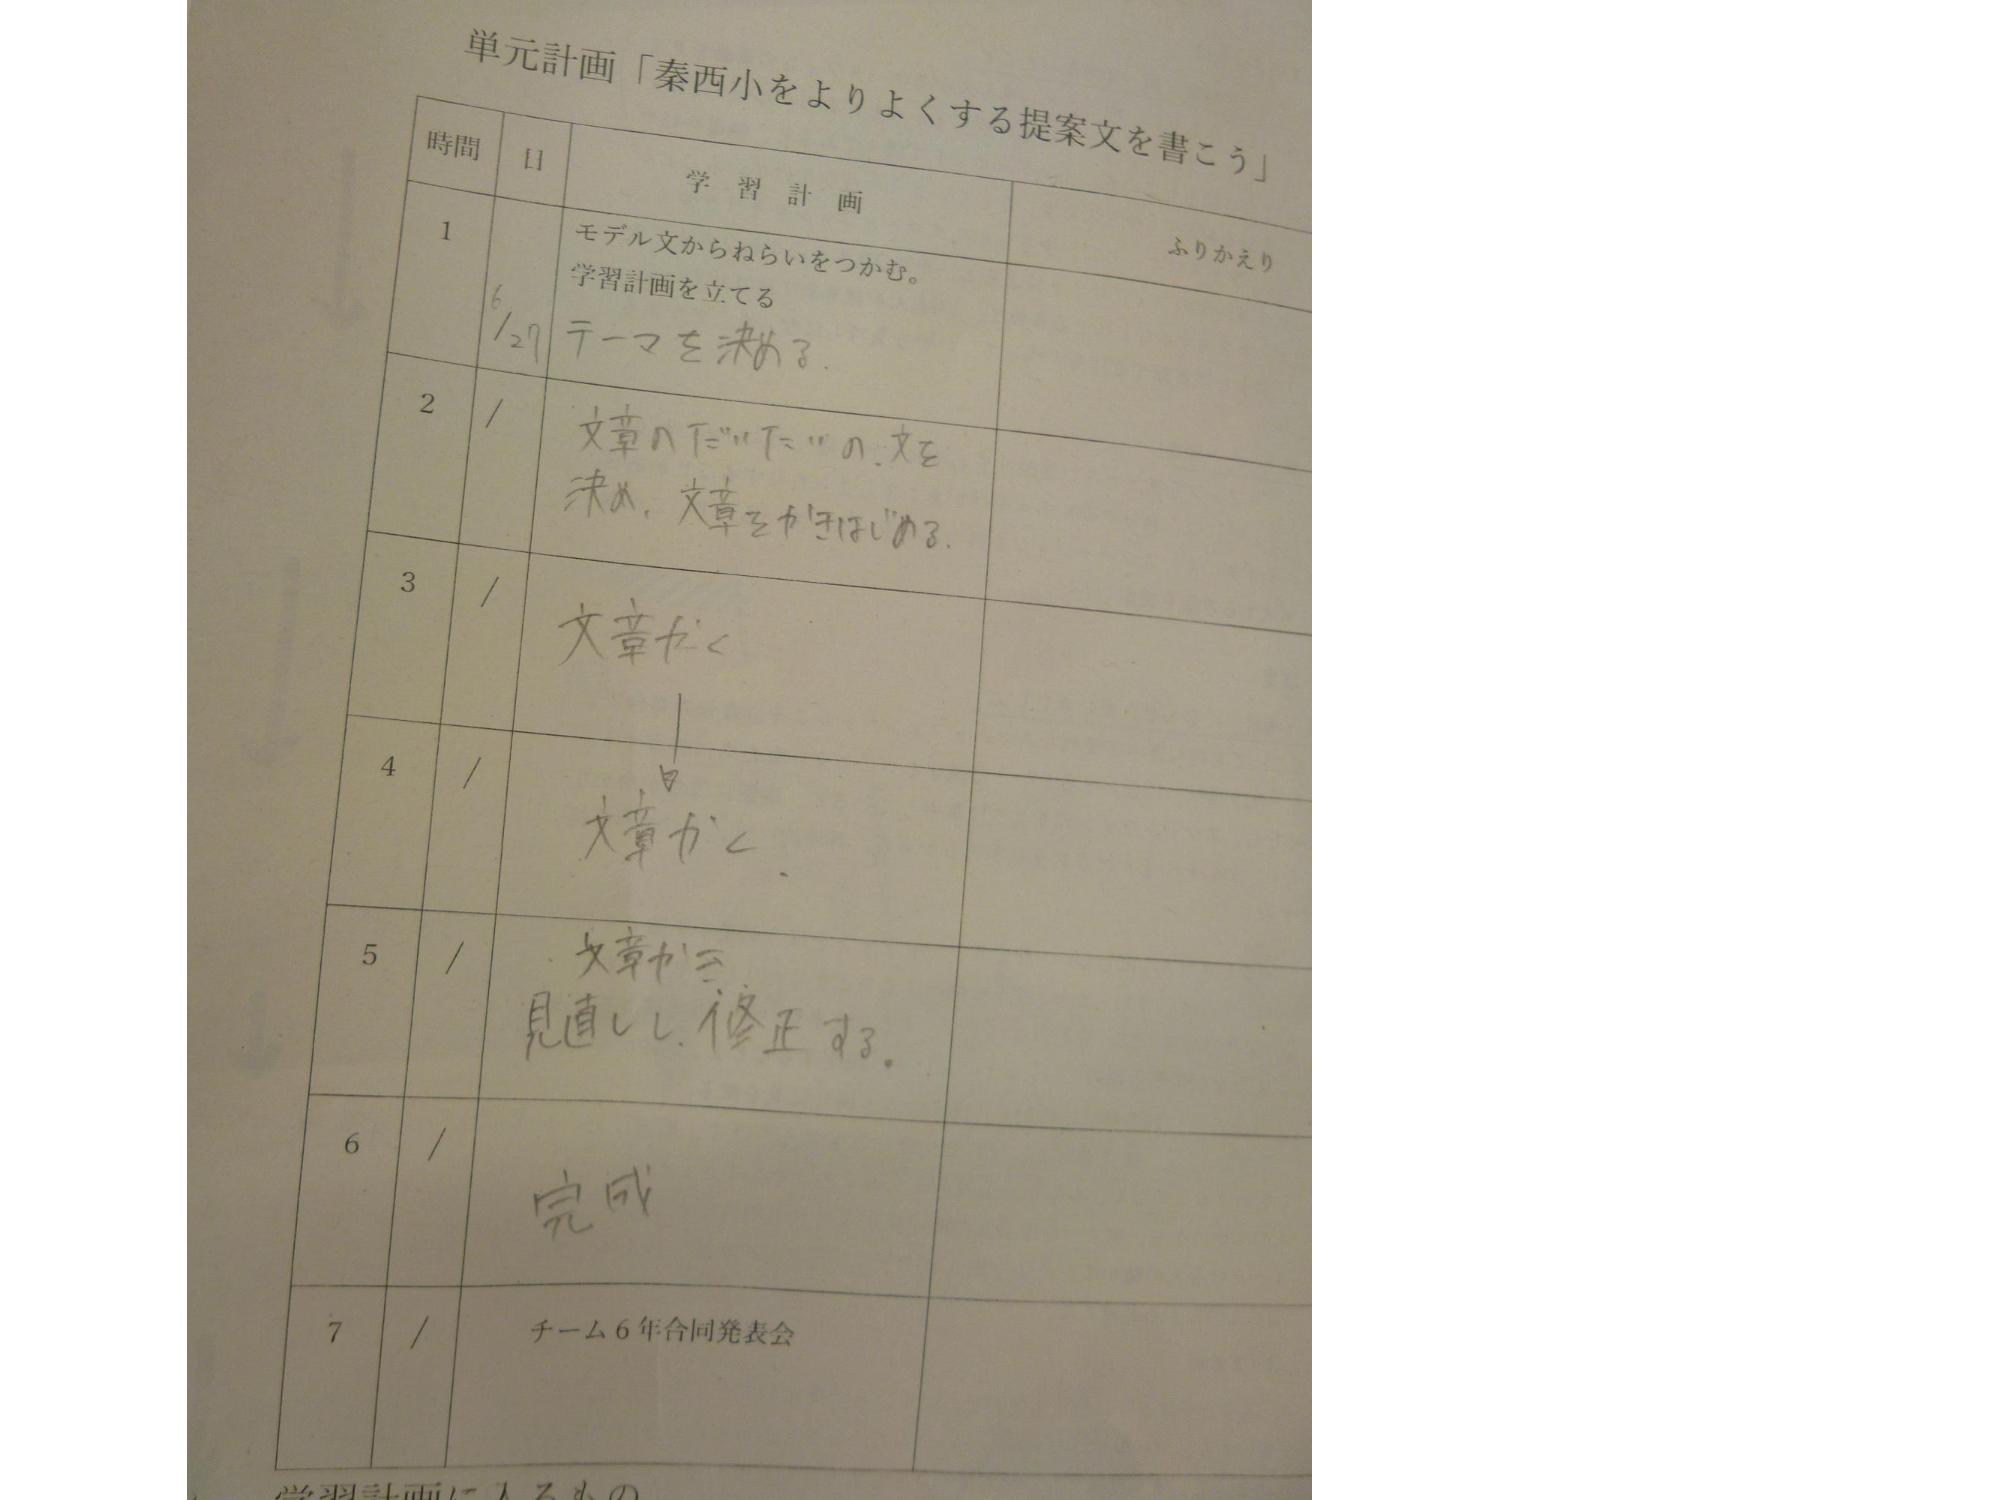 単元計画「秦西小をよりよくする提案文を書こう」
時間 日 学習計画 ふりかえり
1 6/27 モデル文からねらいをつかむ。
学習計画を立てる
テーマを決める.
2 / 文章のだいたいの、文を
決め、文章をかきはじめる.
3 / 文章かく
4 / 文章かく.
5 / 文章かき
見直しし、修正する。
6 / 完成
7 / チーム6年合同発表会
学習計画に入るもの